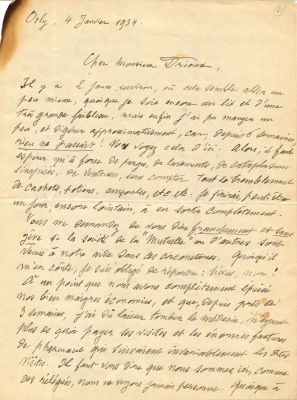 Orly, 4 Janvier 1934.
Cher Monsieur Drioux,
Il y a 2 jours, environ, où cela semble aller un
peu mieux, quoique je sois encore au lit et d'une
très grande faiblesse, mais enfin j'ai pu manger un
peu, et digérer approximativement, car, depuis 6 semaines
rien ne passait! Vous voyez cela d'ici. Alors, il faut
espérer qu'à force de purges, de lavements, de cataplasmes
sinapisés, de ventouses, sans compter tout le tremblement
de cachets, potions, ampoules, etc. etc. je finirai peut-être
un jour encore lointain, à en sortir complètement.
Vous me demandez de vous dire franchement et sans
gêne si la société "de la Mutuelle" ou d'autres sont
venus à notre aide dans ces circonstances. Quoiqu'il
m'en coûte, je suis obligé de répondre: non!
À un point que nous avons complètement épuisé
nos bien maigres économies, et que, depuis près de
3 semaines, j'ai dû laisser tomber le médecin, ne pouvant
plus payer les visites et les énormes factures
de pharmacie qui suivaient invariablement les dites
visites. Il faut vous dire que nous sommes ici, comme
des relégués, nous ne voyons jamais personne. Quoique à